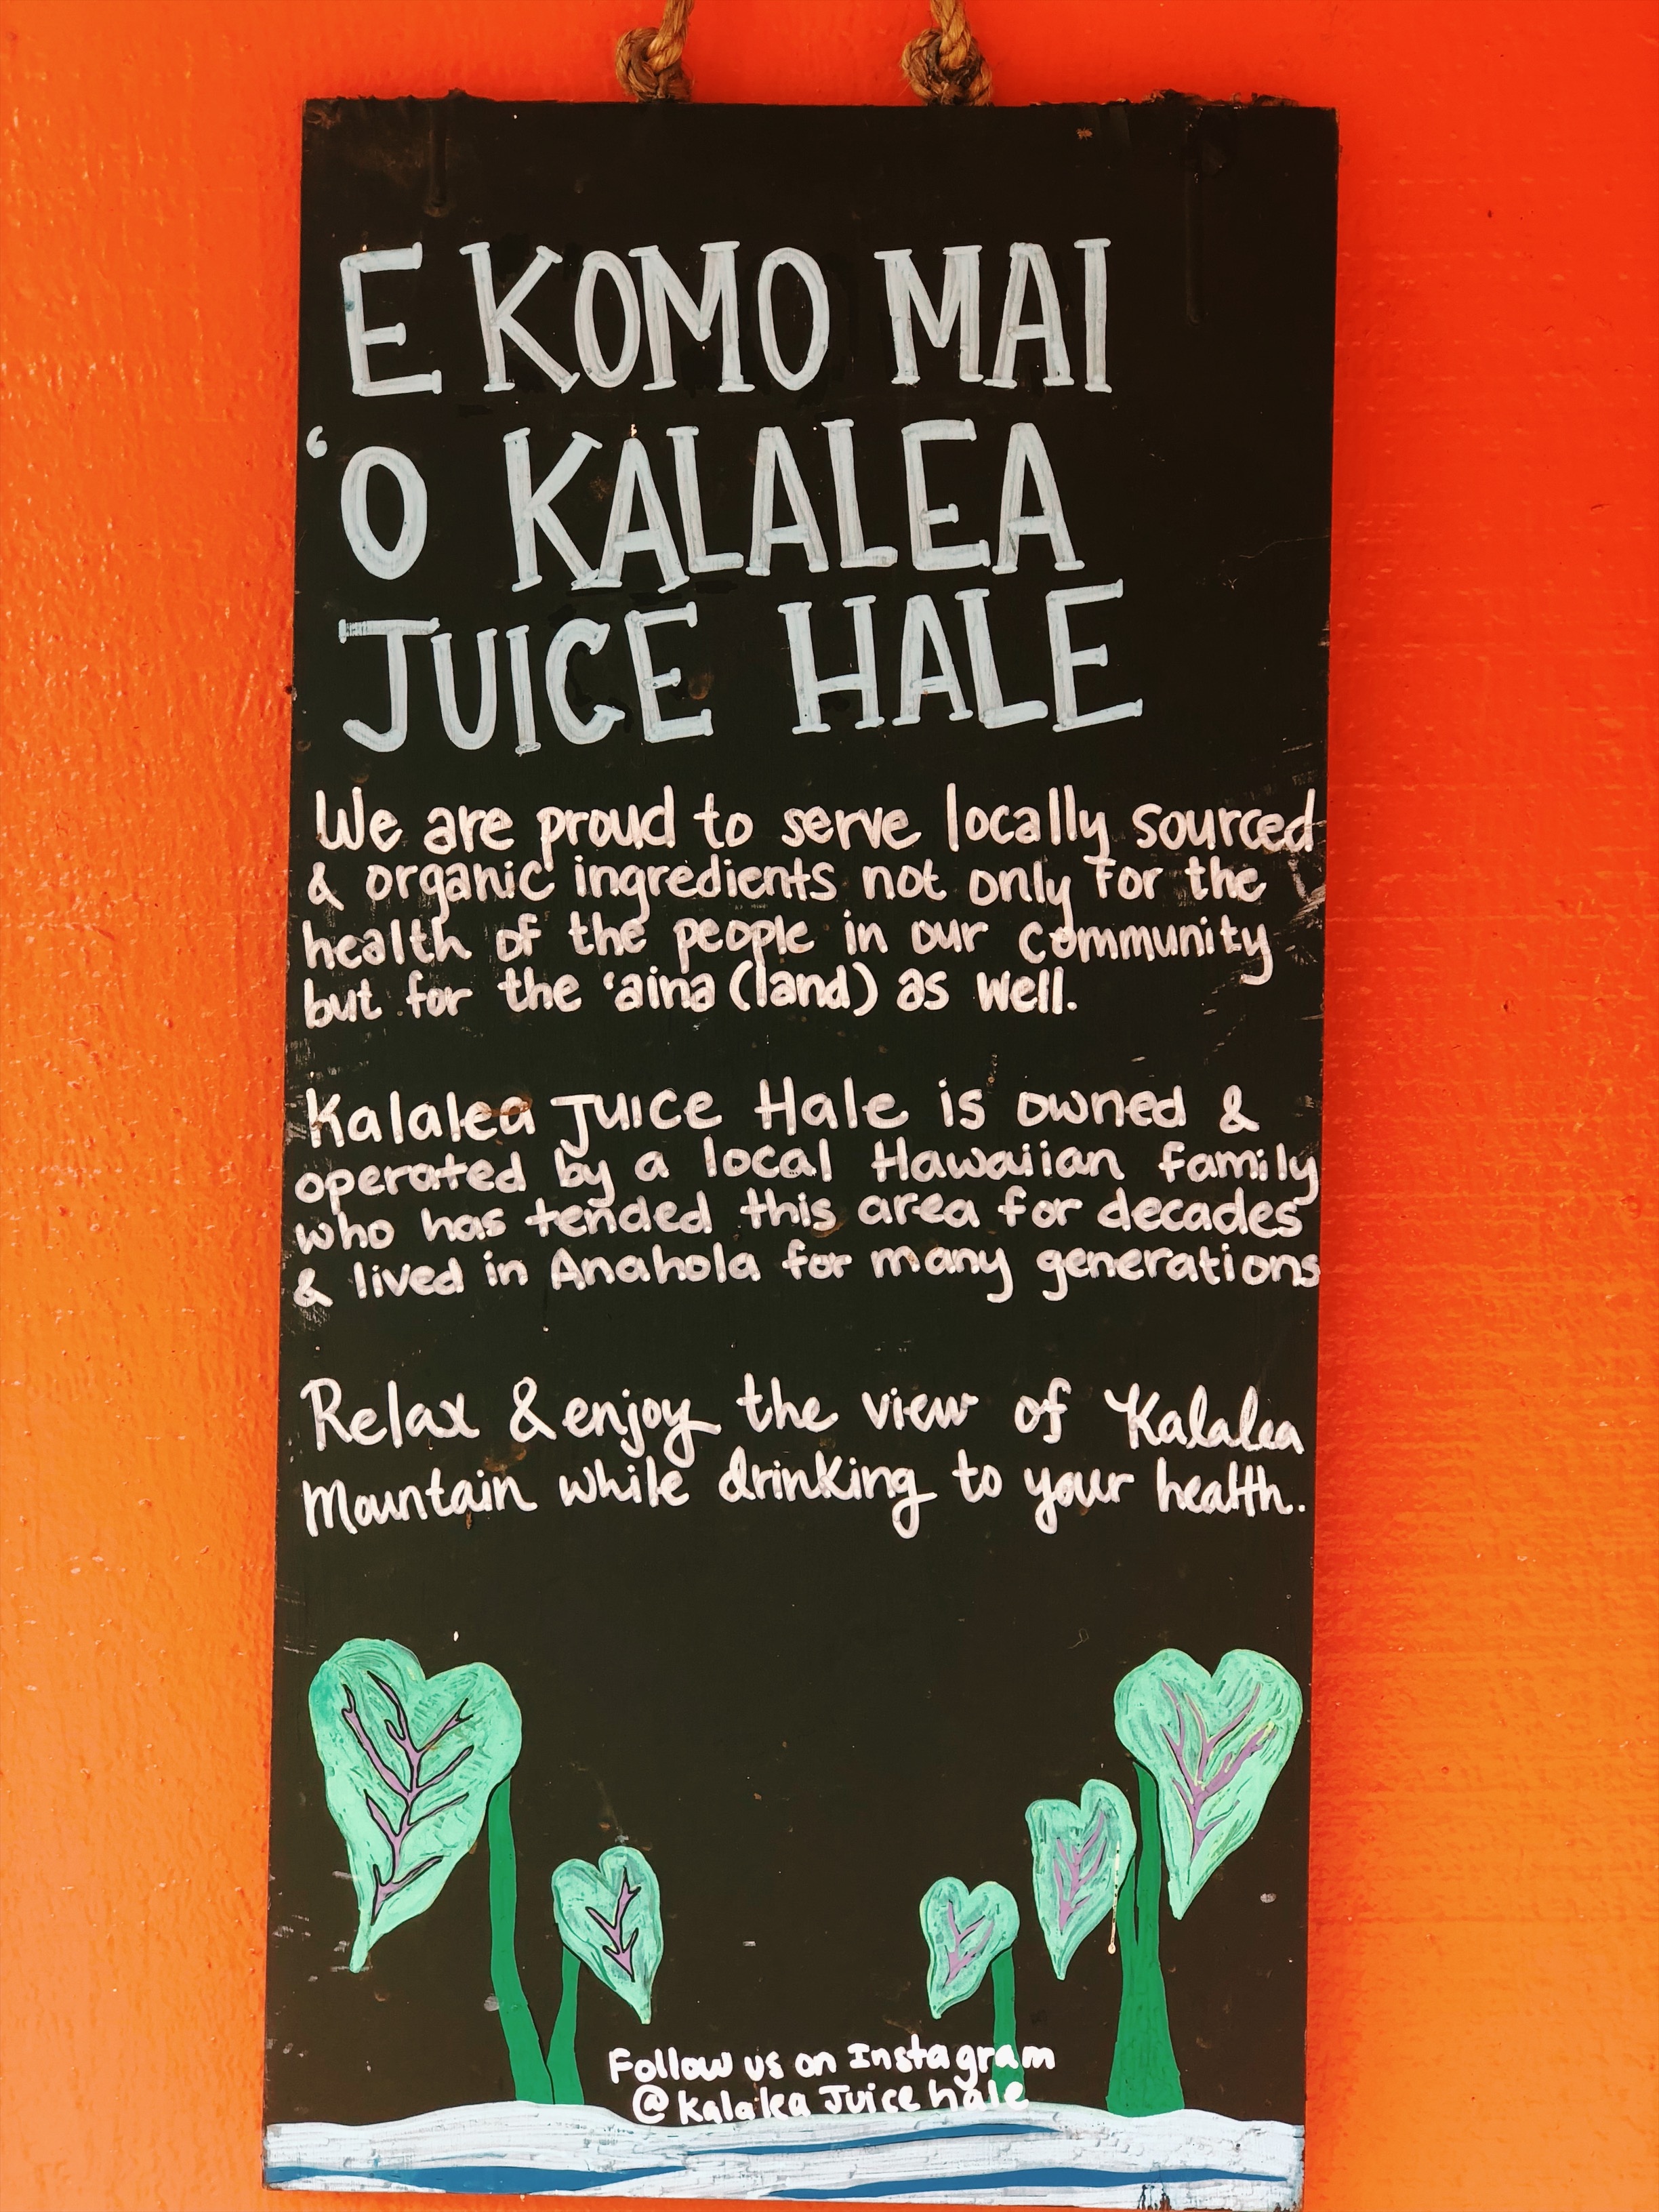 E KOMO MAI
ʻO KALALEA
JUICE HALE
We are proud to serve locally sourced
& organic ingredients not only for the
health of the people in our community
but for the ʻaina (land) as well.
Kalalea Juice Hale is owned &
operated by a local Hawaiian family
who has tended this area for decades
& lived in Anahola for many generations
Relax & enjoy the view of Kalalea
Mountain while drinking to your health.
Follow us on Instagram
@kalalea Juice hale